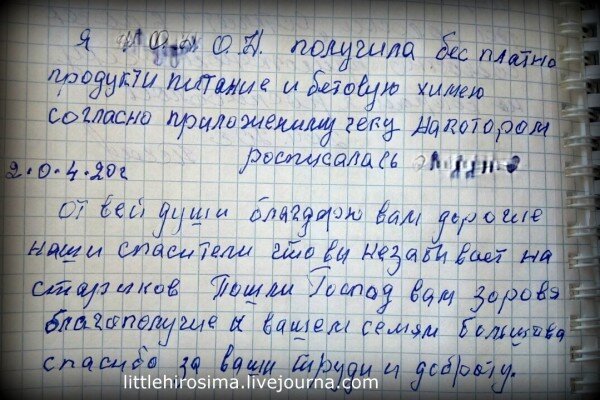 Я О.Н. получила бес платно
продукти питание и бытовую химею
согласно приложеним чеку накотором
росписалась
2.0.4.20г
от вей души благодарю вам дорогие
наши спасители что ви незабивает на
стариков Пошли Господ вам здоровя
благополучие и вашем семям большова
спасибо за ваши труди и доброту.
littlehirosima.livejourna.com